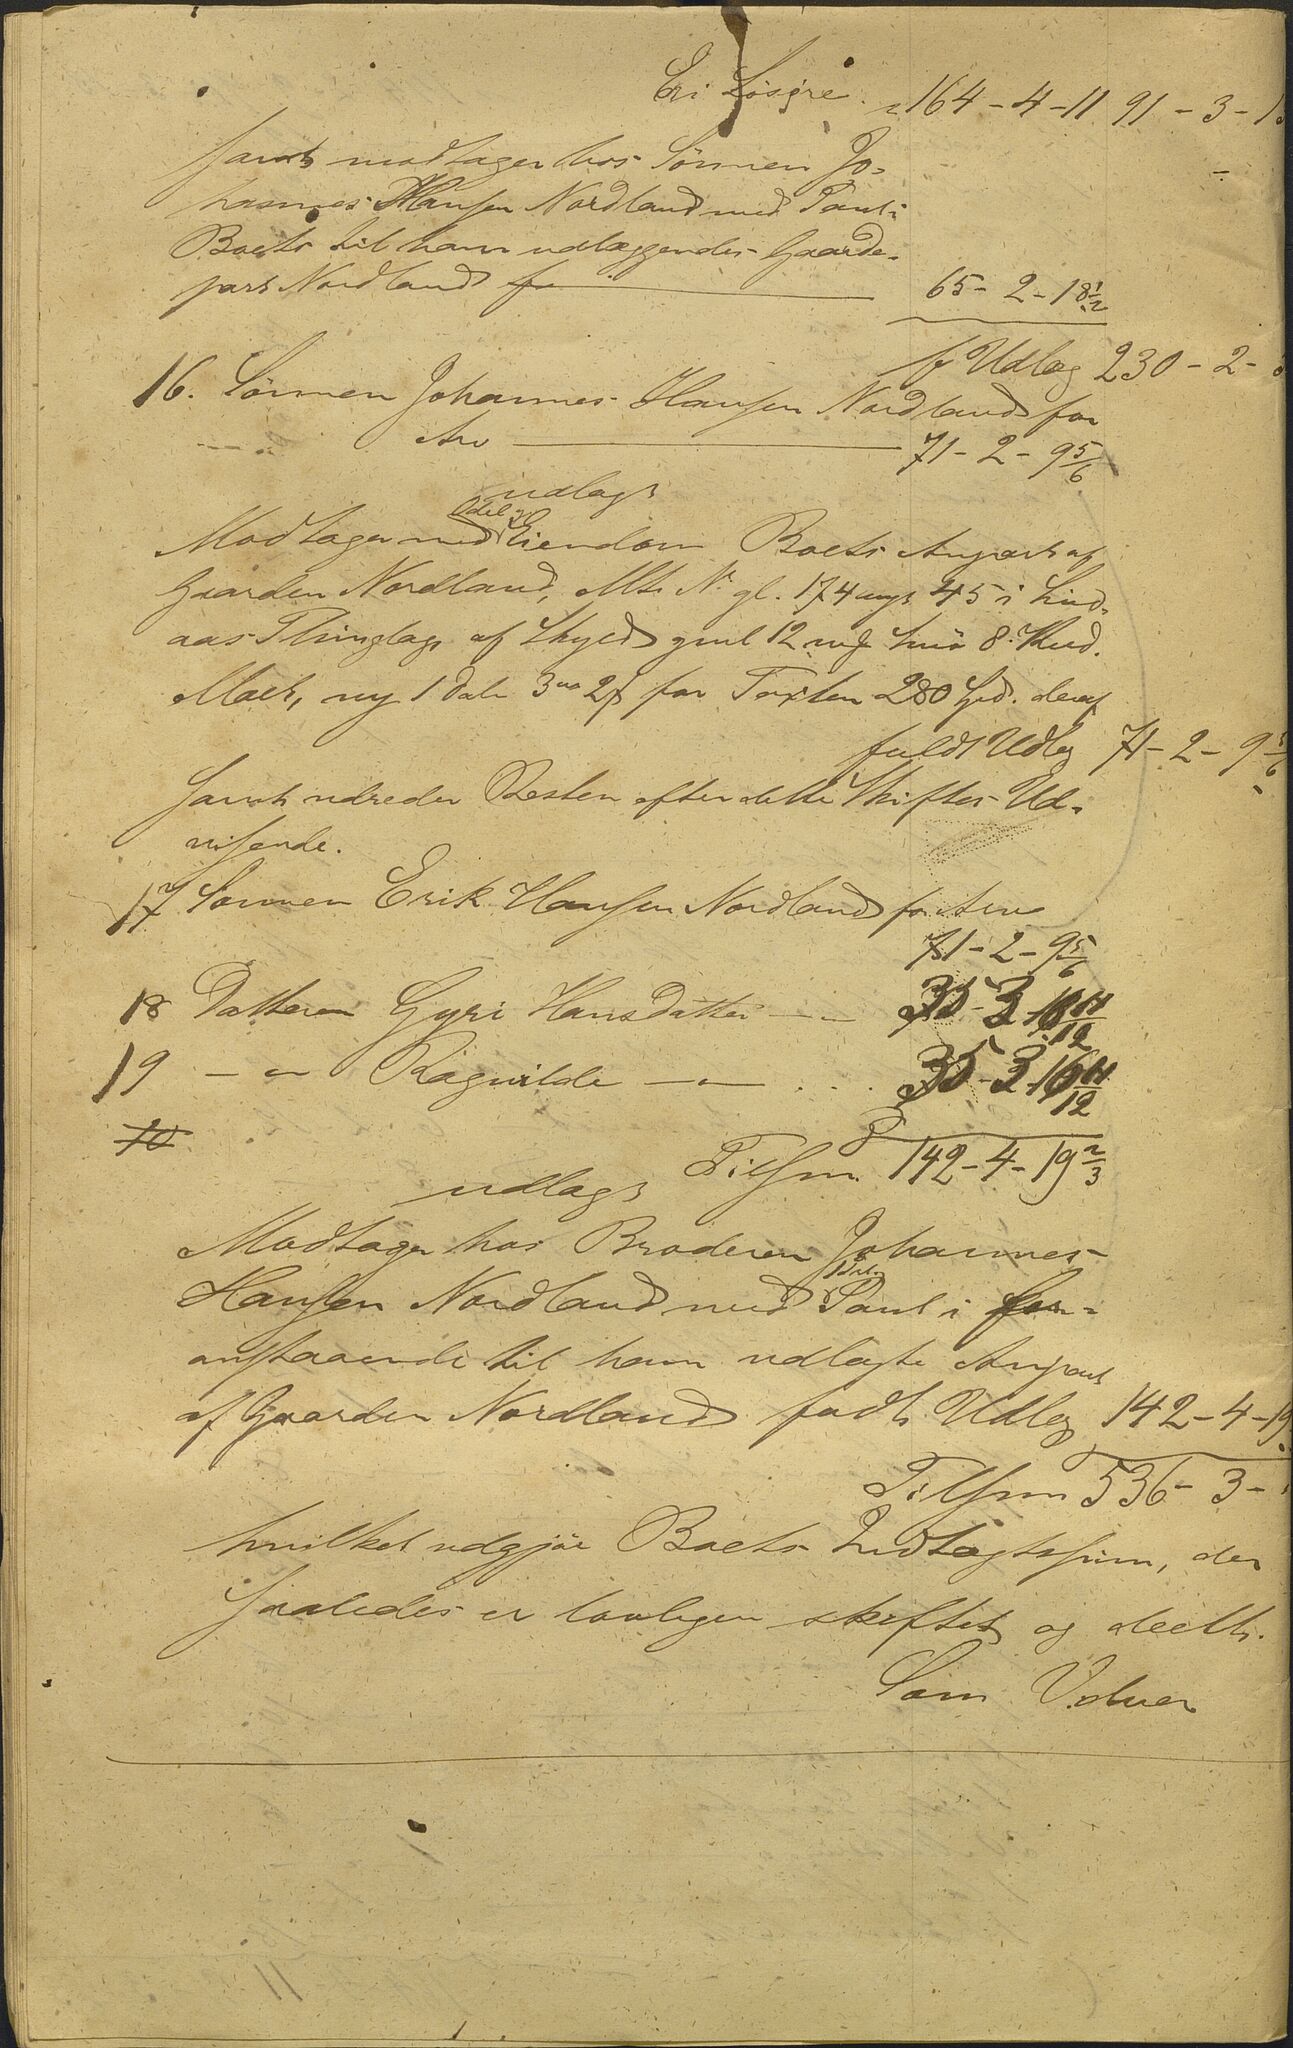 Eri Løsøre 164-4-11 91-3-1
samt modtager hos Sønnen Jo-
hannes Hansen Nordland med Pant i
Boets til ham udlæggendes Gaarde-
part Nordland for 65-2-18½
f Udlæg 230-2-
16. Sønnen Johannes Hansen Nordland for
Arv 71-2-9 5/6
udlagt
Modtager med Odel og Eiendom Boets Anpart af
Gaarden Nordland, Mts No gl. 174 nyt 45 i Lind-
aas Thinglag af Skyld gml 12 mrk Smør 8 Kud.
Malt, ny 1 Daler 3 ort 2 s for Taxten 280 Spd. deraf
fuldt Udlæg 71-2-9 5/6
samt udreder Resten efter dette Skiftes Ud-
visende.
17 Sønnen Erik Hansen Nordland for Arv
71-2-9 5/6
18 Datteren Gyri Hansdatter - - 35-3-16 11/12
19 - " - Ragnilde - " - . . . 35-3-16 11/12
Tilsm. 142-4-19 2/3
udlagt
Modtager hos Broderen Johannes
Hansen Nordland med 1ste Pant i for-
anstaaende til ham udlagte Anpart
af Gaarden Nordland fuldt Udlæg 142-4-19
Tilsm 536-3-
hvilket udgjør Boets Indtægtssum, der
saaledes er lovligen skiftet og deelt.
Sam